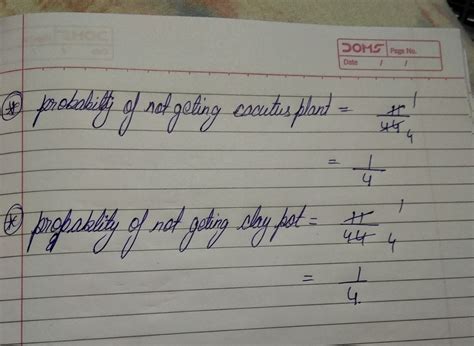 DOMS Page No.
Date / /
* probability of not geting cacutus plant = 11/44 1 4
= 1/4
* progpability of not goting clay pot = 11/44 1 4
= 1/4.